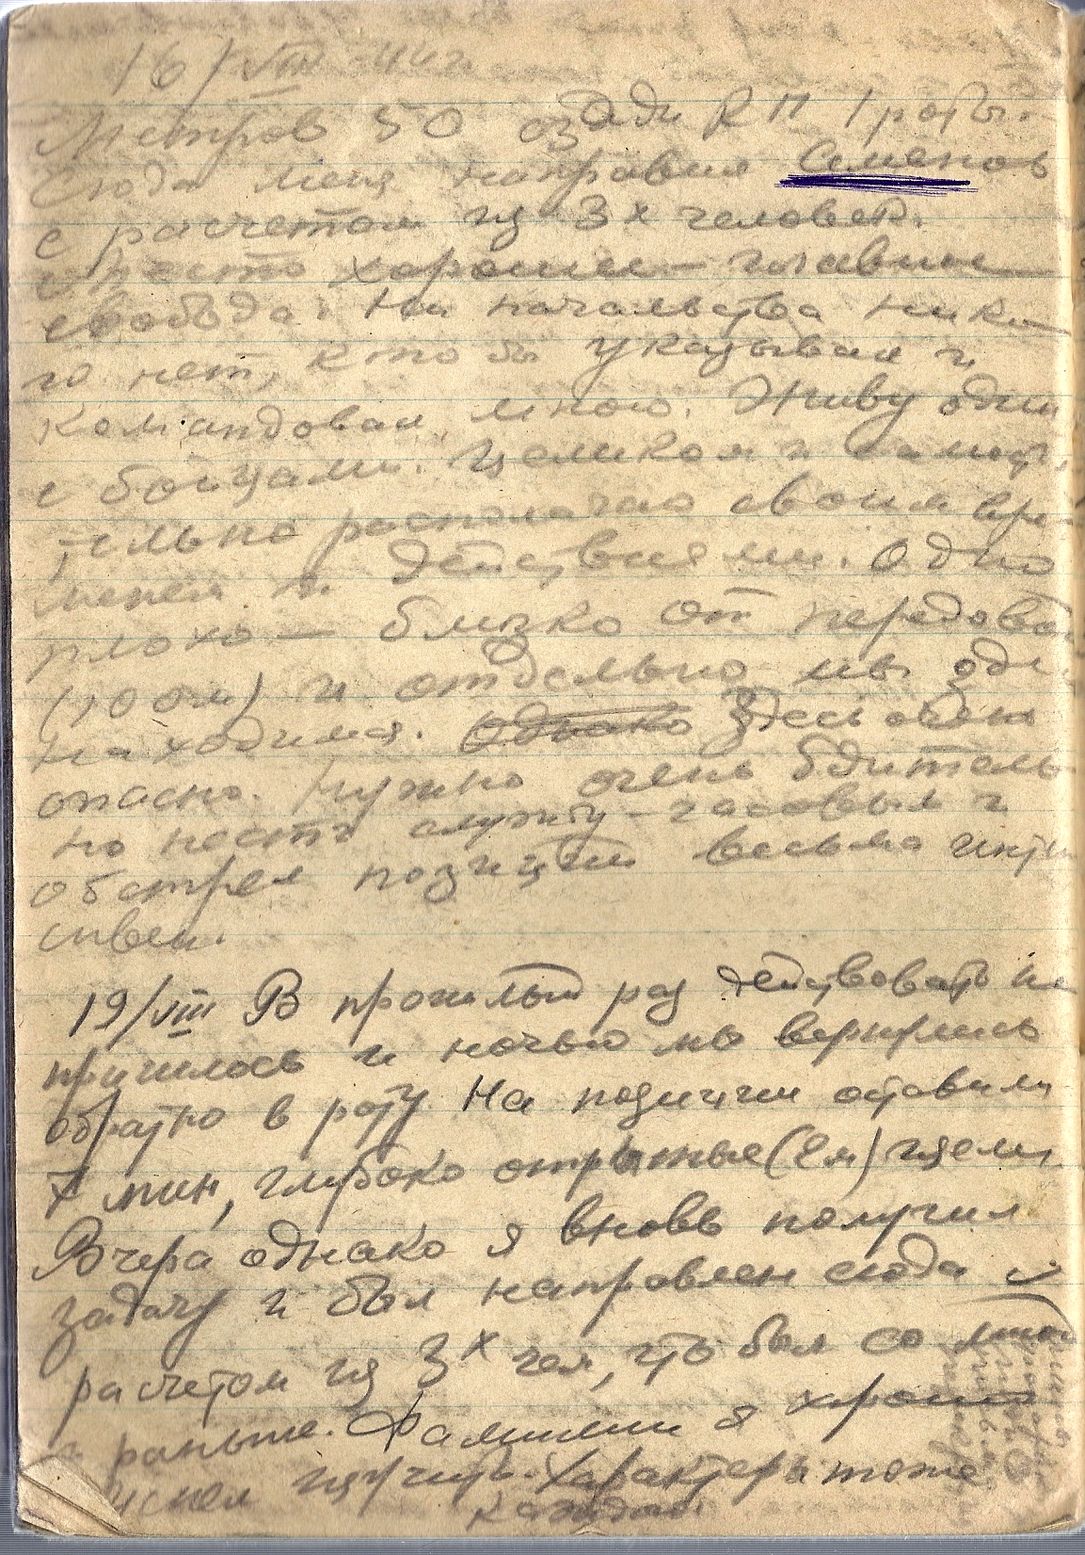 16/VIII-44г.
Метров 50 сзади КП 1 роты.
Сюда меня направил Семенов
с расчетом из 3х человек.
Место хорошее – главное
свобода. Ни начальства нико-
го нет, кто бы указывал и
командовал мною. Живу один
с бойцами. Целиком и самост.
тельно располагаю своим вре-
менем и действиями. Одно
плохо – близко от передовой
(100 м) и отдельно мы одни
находимся. Однако Здесь очень
опасно. Нужно очень бдитель-
но нести службу – часовым и
обстрел позиций весьма инт
сивен.
19/VIII В прошлый раз действовать не
пришлось и ночью мы вернулись
обратно в роту На позиции оставили
7 мин, глубоко отрытые (2м) щели.
Вчера однако я вновь получил
задачу и был направлен сюда с
расчетом из 3х чел, что был со мной
и раньше. Фамилии я хорошо
успел изучить. Характеры тоже
каждого